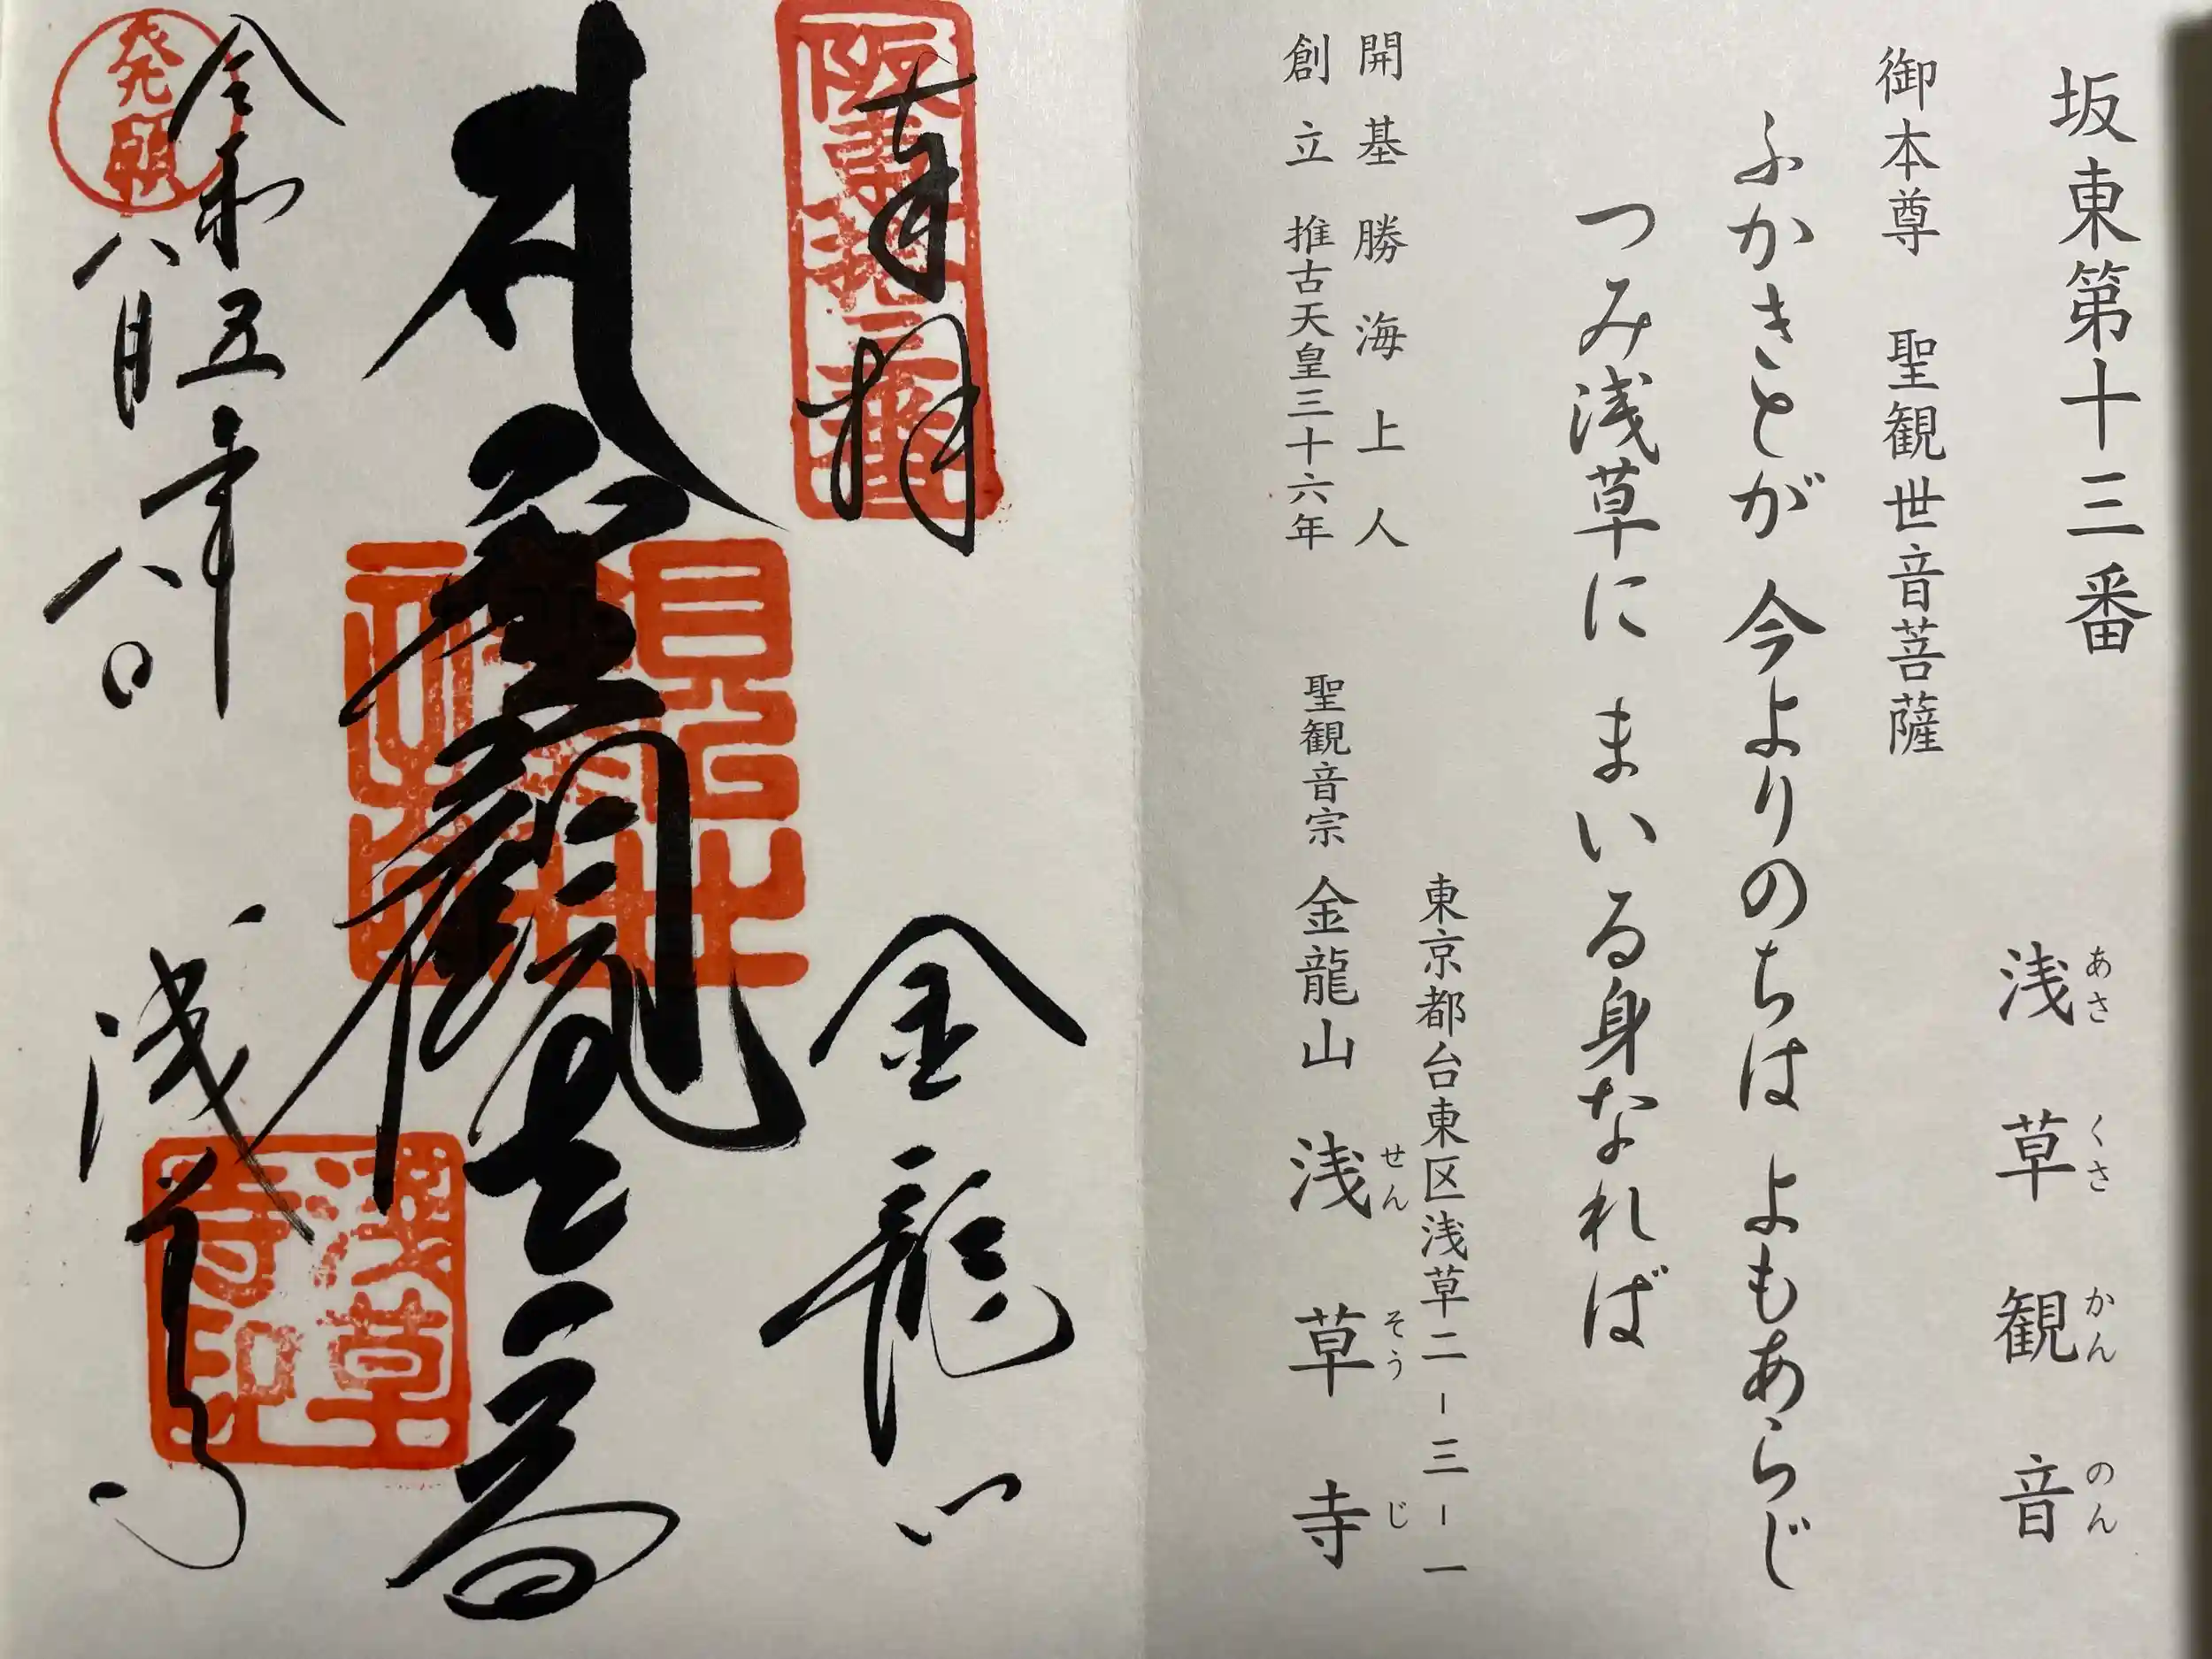 坂東第十三番
浅草観音
あさくさかんのん
御本尊 聖観世音菩薩
ふかきとが 今よりのちは よもあらじ
つみ浅草に まいる身なれば
東京都台東区浅草二-三-一
開基 勝海上人
創立 推古天皇三十六年
聖観音宗 金龍山 浅草寺
せんそうじ
奉拝
金龍山
坂東拾三番
聖観世音
令和五年
八月八日
発願
浅草寺
浅草寺印